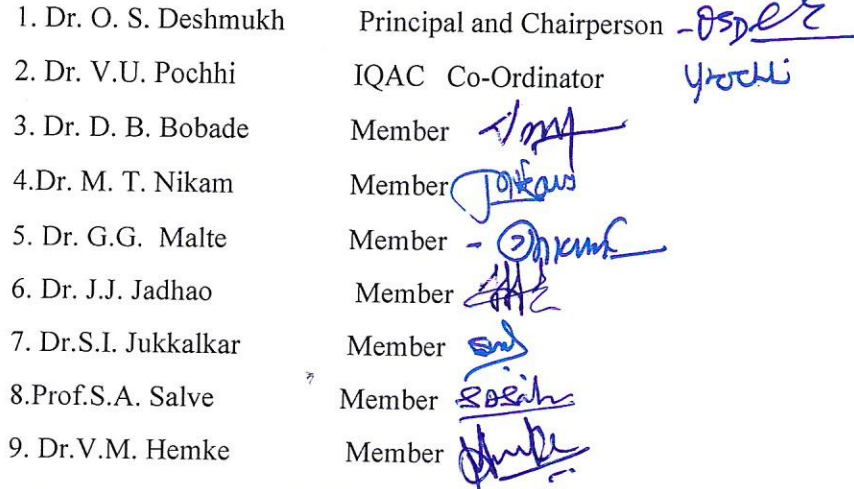 1. Dr. O. S. Deshmukh Principal and Chairperson -
2. Dr. V.U. Pochhi IQAC Co-Ordinator
3. Dr. D. B. Bobade Member
4.Dr. M. T. Nikam Member
5. Dr. G.G. Malte Member -
6. Dr. J.J. Jadhao Member
7. Dr.S.I. Jukkalkar Member
8.Prof.S.A. Salve Member
9. Dr.V.M. Hemke Member